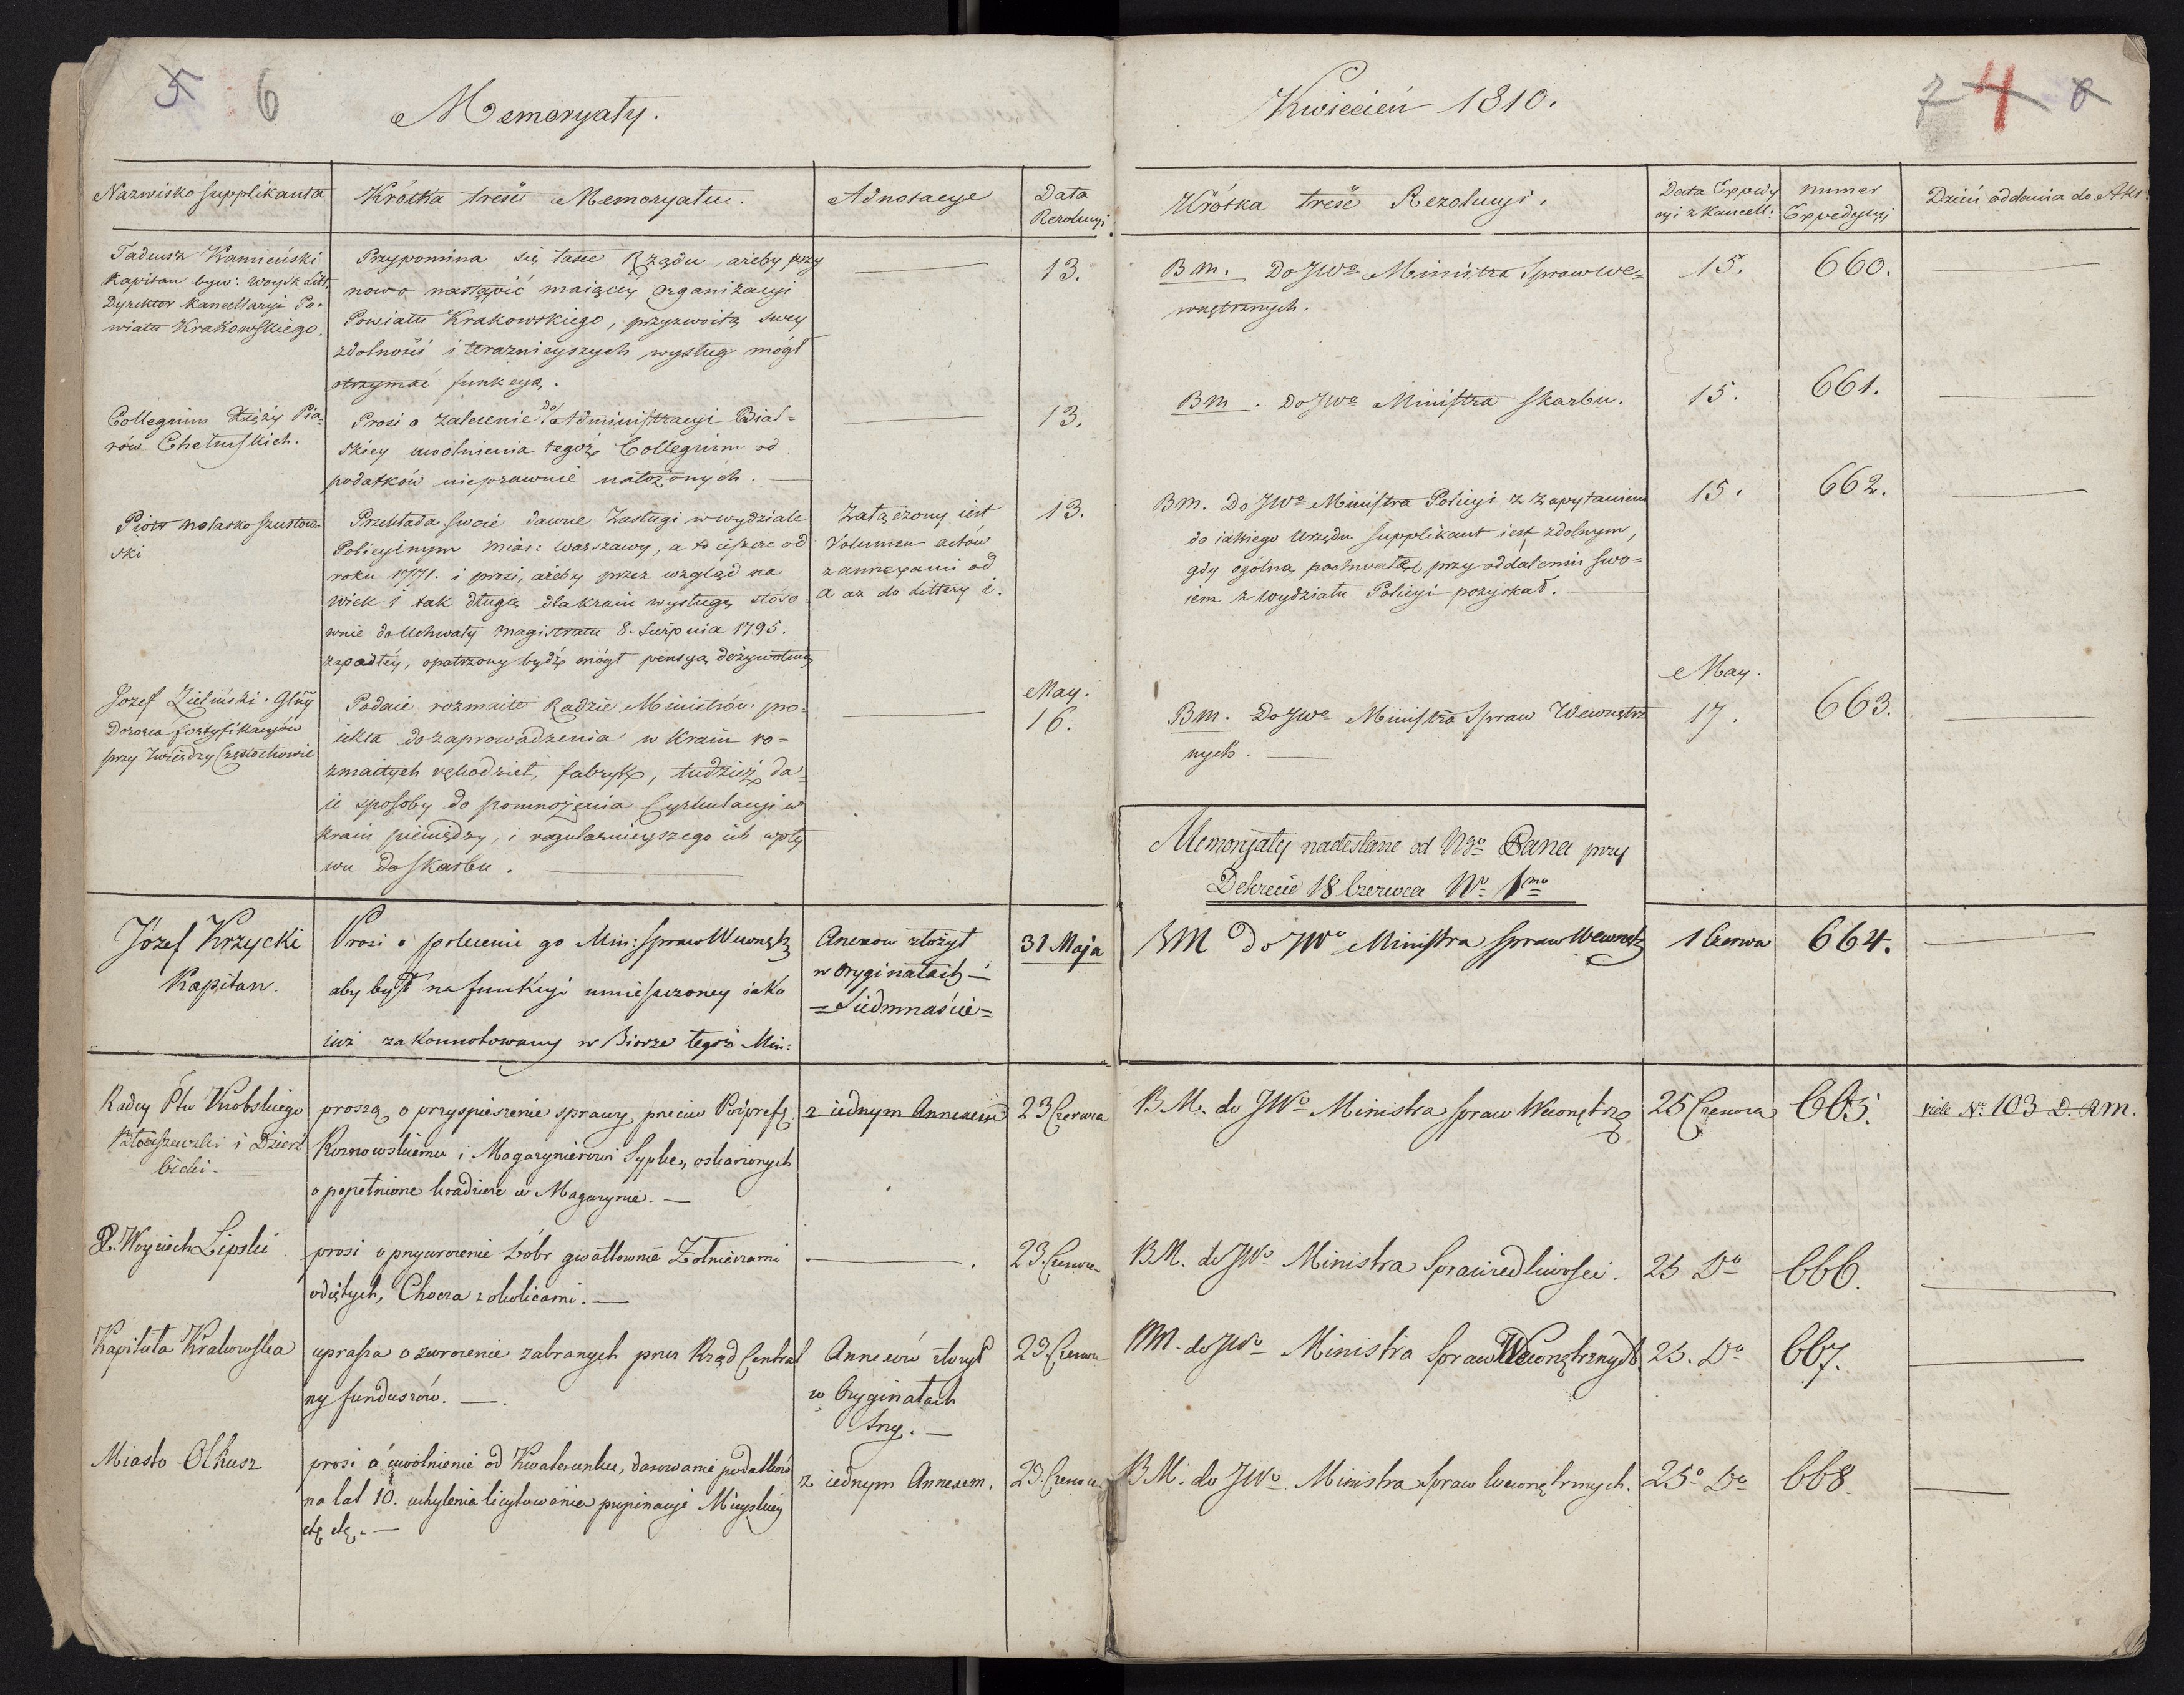 5 6
Memoryały.
Nazwisko supplikanta
Krótka treść Memoryału.
Adnotacye
Data
Rezolucyi
Tadeusz Kamieński
Kapitan byw: Woysk Litt.
Dyrektor Kancellaryi Po-
wiatu Krakowskiego.
Przypomina się łasce Rządu, ażeby przy
nowo nastąpić maiącey organizacyi
Powiatu Krakowskiego, przyzwoitą swey
zdolności i teraznieyszych wysług mógł
otrzymać funkcyą.
13.
Collegium Xięży Pia-
rów Chełmskich.
Prosi o zalecenie do Administracyi Bial-
skiey uwolnienia tegoż Collegium od
podatków nieprawnie nałożonych.
13.
Piotr Nolasko Szustow-
ski
Przekłada swoie dawne Zasługi w wydziale
Policyinym Mias: Warszawy, a to ieszcze od
roku 1771. i prosi, ażeby przez wzgląd na
wiek i tak długą dla kraiu wysługę stoso-
wnie do Uchwały Magistratu 8. Sierpnia 1795.
zapadłéy, opatrzony bydź mógł pensyą dożywotnią
Załączony iest
Volumen actów
z annexami od
A aż do Littery i.
13.
Jozef Zieliński. Głny
Dozorca fortyfikacyów
przy Twierdzy Częstochowie
Podaie rozmaite Radzie Ministrów pro-
iekta do zaprowadzenia w Kraiu ro-
zmaitych rękodzieł, fabryk, tudzież da-
ie sposoby do pomnożenia Cyrkulacyi w
kraiu pieniędzy, i regularnieyszego ich wpły
wu do skarbu.
May.
16.
Józef Krzycki
Kapitan.
Prosi o polecenie go Min: spraw Wewnętrz
aby był na funkcyi umieszczoney iako
iuż zakonnotowany w Biorze tegoż Min:
Anexow złożył
w oryginałach
= Siedmnaście =
31 Maja
Radcy Ptu
i Dzierż
bicki.
proszą o przyspieszenie sprawy przeciw Podpref.
i Magazynierowi Sypke, oskarżonych
o popełnione kradzieże w Magazynie.
z iednym Annexem
23 Czerwca
P. Woyciech Lipski
prosi o przywrocenie Dóbr gwałtownie Żołnierzami
odiętych, Chocza z okolicami.
23. Czerwca
Kapituła Krakowska
uprasza o zwrocenie zabranych przez Rząd Central
ny funduszów.
Annexów złożył
w Oryginałach
trzy.
23 Czerwca
Miasto Olkusz
prosi o uwolnienie od Kwaterunku, darowanie podatków
na lat 10. uchylenia licytowania propinacyi Mieyskiey
etc etc.
z iednym Annexem.
23. Czerwca
Kwiecień 1810.
7 4 8
Krótka treść Rezolucyi.
Data Expedy
cyi z Kancell.
Numer
Expedycyi
Dzień oddania do Akt.
BM. Do JWo Ministra Spraw We-
wnętrznych.
15.
660.
BM. Do JWo Ministra skarbu.
15.
661.
BM. Do JWo Ministra Policyi z Zapytaniem
do iakiego Urzędu supplikant iest zdolnym,
gdy ogólną pochwałę przy oddaleniu swo-
iem z wydziału Policyi pozyskał.
15.
662.
BM. Do JWo Ministra Spraw Wewnętrz
nych.
May.
17.
663.
Memoryały nadesłane od Ngo Pana przy
Dekrecie 18 Czerwca No 1mo
BM do JWo Ministra spraw Wewnętrz
1 Czerwca
664.
B.M. do JWo Ministra spraw Wewnętrz
25 Czerwca
665.
vide No 103 D. RM.
BM. do JWo Ministra Sprawiedliwosci.
25 Do
666.
BM. do JWo Ministra Spraw Wewnętrznych.
25. Do
667.
BM. do JWo Ministra Spraw Wewnętrznych.
25o Do
668.